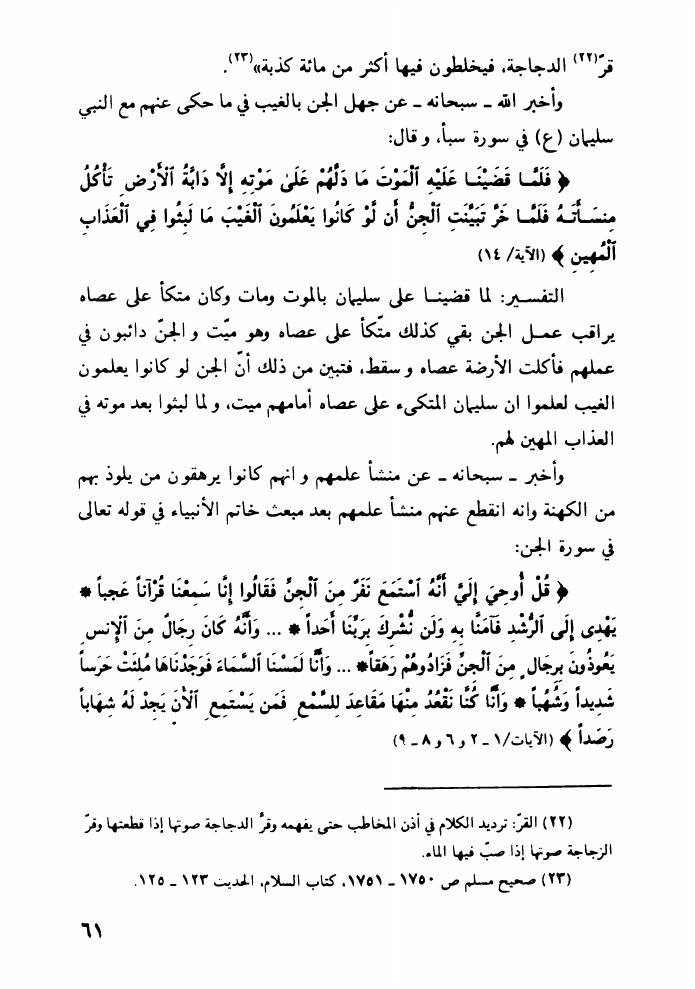 قرّ(٢٢) الدجاجة، فيخلطون فيها أكثر من مائة كذبة»(٢٣).
وأخبر الله ـ سبحانه ـ عن جهل الجن بالغيب في ما حكى عنهم مع النبي
سليمان (ع) في سورة سبأ، وقال:
﴿ فَلَمَّا قَضَيْنَا عَلَيْهِ ٱلْمَوْتَ مَا دَلَّهُمْ عَلَىٰ مَوْتِهِ إِلَّا دَابَّةُ ٱلأَرْضِ تَأْكُلُ
مِنسَأَتَهُ فَلَمَّا خَرَّ تَبَيَّنَتِ ٱلْجِنُّ أَن لَوْ كَانُوا يَعْلَمُونَ ٱلْغَيْبَ مَا لَبِثُوا فِي ٱلْعَذَابِ
ٱلْمُهِينِ ﴾ (الآية/ ١٤)
التفسير: لما قضينا على سليمان بالموت ومات وكان متكأ على عصاه
يراقب عمل الجن بقي كذلك متّكأ على عصاه وهو ميّت والجنّ دائبون في
عملهم فأكلت الأرضة عصاه وسقط، فتبين من ذلك أنّ الجن لو كانوا يعلمون
الغيب لعلموا ان سليمان المتكىء على عصاه أمامهم ميت، ولما لبثوا بعد موته في
العذاب المهين لهم.
وأخبر ـ سبحانه ـ عن منشأ علمهم وانهم كانوا يرهقون من يلوذ بهم
من الكهنة وانه انقطع عنهم منشأ علمهم بعد مبعث خاتم الأنبياء في قوله تعالى
في سورة الجن:
﴿ قُلْ أُوحِيَ إِلَيَّ أَنَّهُ ٱسْتَمَعَ نَفَرٌ مِنَ ٱلْجِنِّ فَقَالُوا إِنَّا سَمِعْنَا قُرْآناً عَجَباً *
يَهْدِى إِلَى ٱلرُّشْدِ فَآمَنَّا بِهِ وَلَن نُّشْرِكَ بِرَبِّنَا أَحَداً * ... وَأَنَّهُ كَانَ رِجَالٌ مِنَ ٱلإِنسِ
يَعُوذُونَ بِرِجَالٍ مِنَ ٱلْجِنِّ فَزَادُوهُمْ رَهَقاً* ... وَأَنَّا لَمَسْنَا السَّمَاءَ فَوَجَدْنَاهَا مُلِئَتْ حَرَساً
شَدِيداً وَشُهُباً * وَأَنَّا كُنَّا نَقْعُدُ مِنْهَا مَقَاعِدَ لِلسَّمْعِ فَمَن يَسْتَمِعِ ٱلأنَ يَجِدْ لَهُ شِهَاباً
رَصَداً ﴾ (الآيات/١ ـ ٢ و ٦ و ٨ ـ ٩)
(٢٢) القرّ: ترديد الكلام في أذن المخاطب حتى يفهمه وقرُّ الدجاجة صوتها إذا قطعتها وقرّ
الزجاجة صوتها إذا صبّ فيها الماء.
(٢٣) صحيح مسلم ص ١٧٥٠ ـ ١٧٥١، كتاب السلام، الحديت ١٢٣ ـ ١٢٥.
٦١